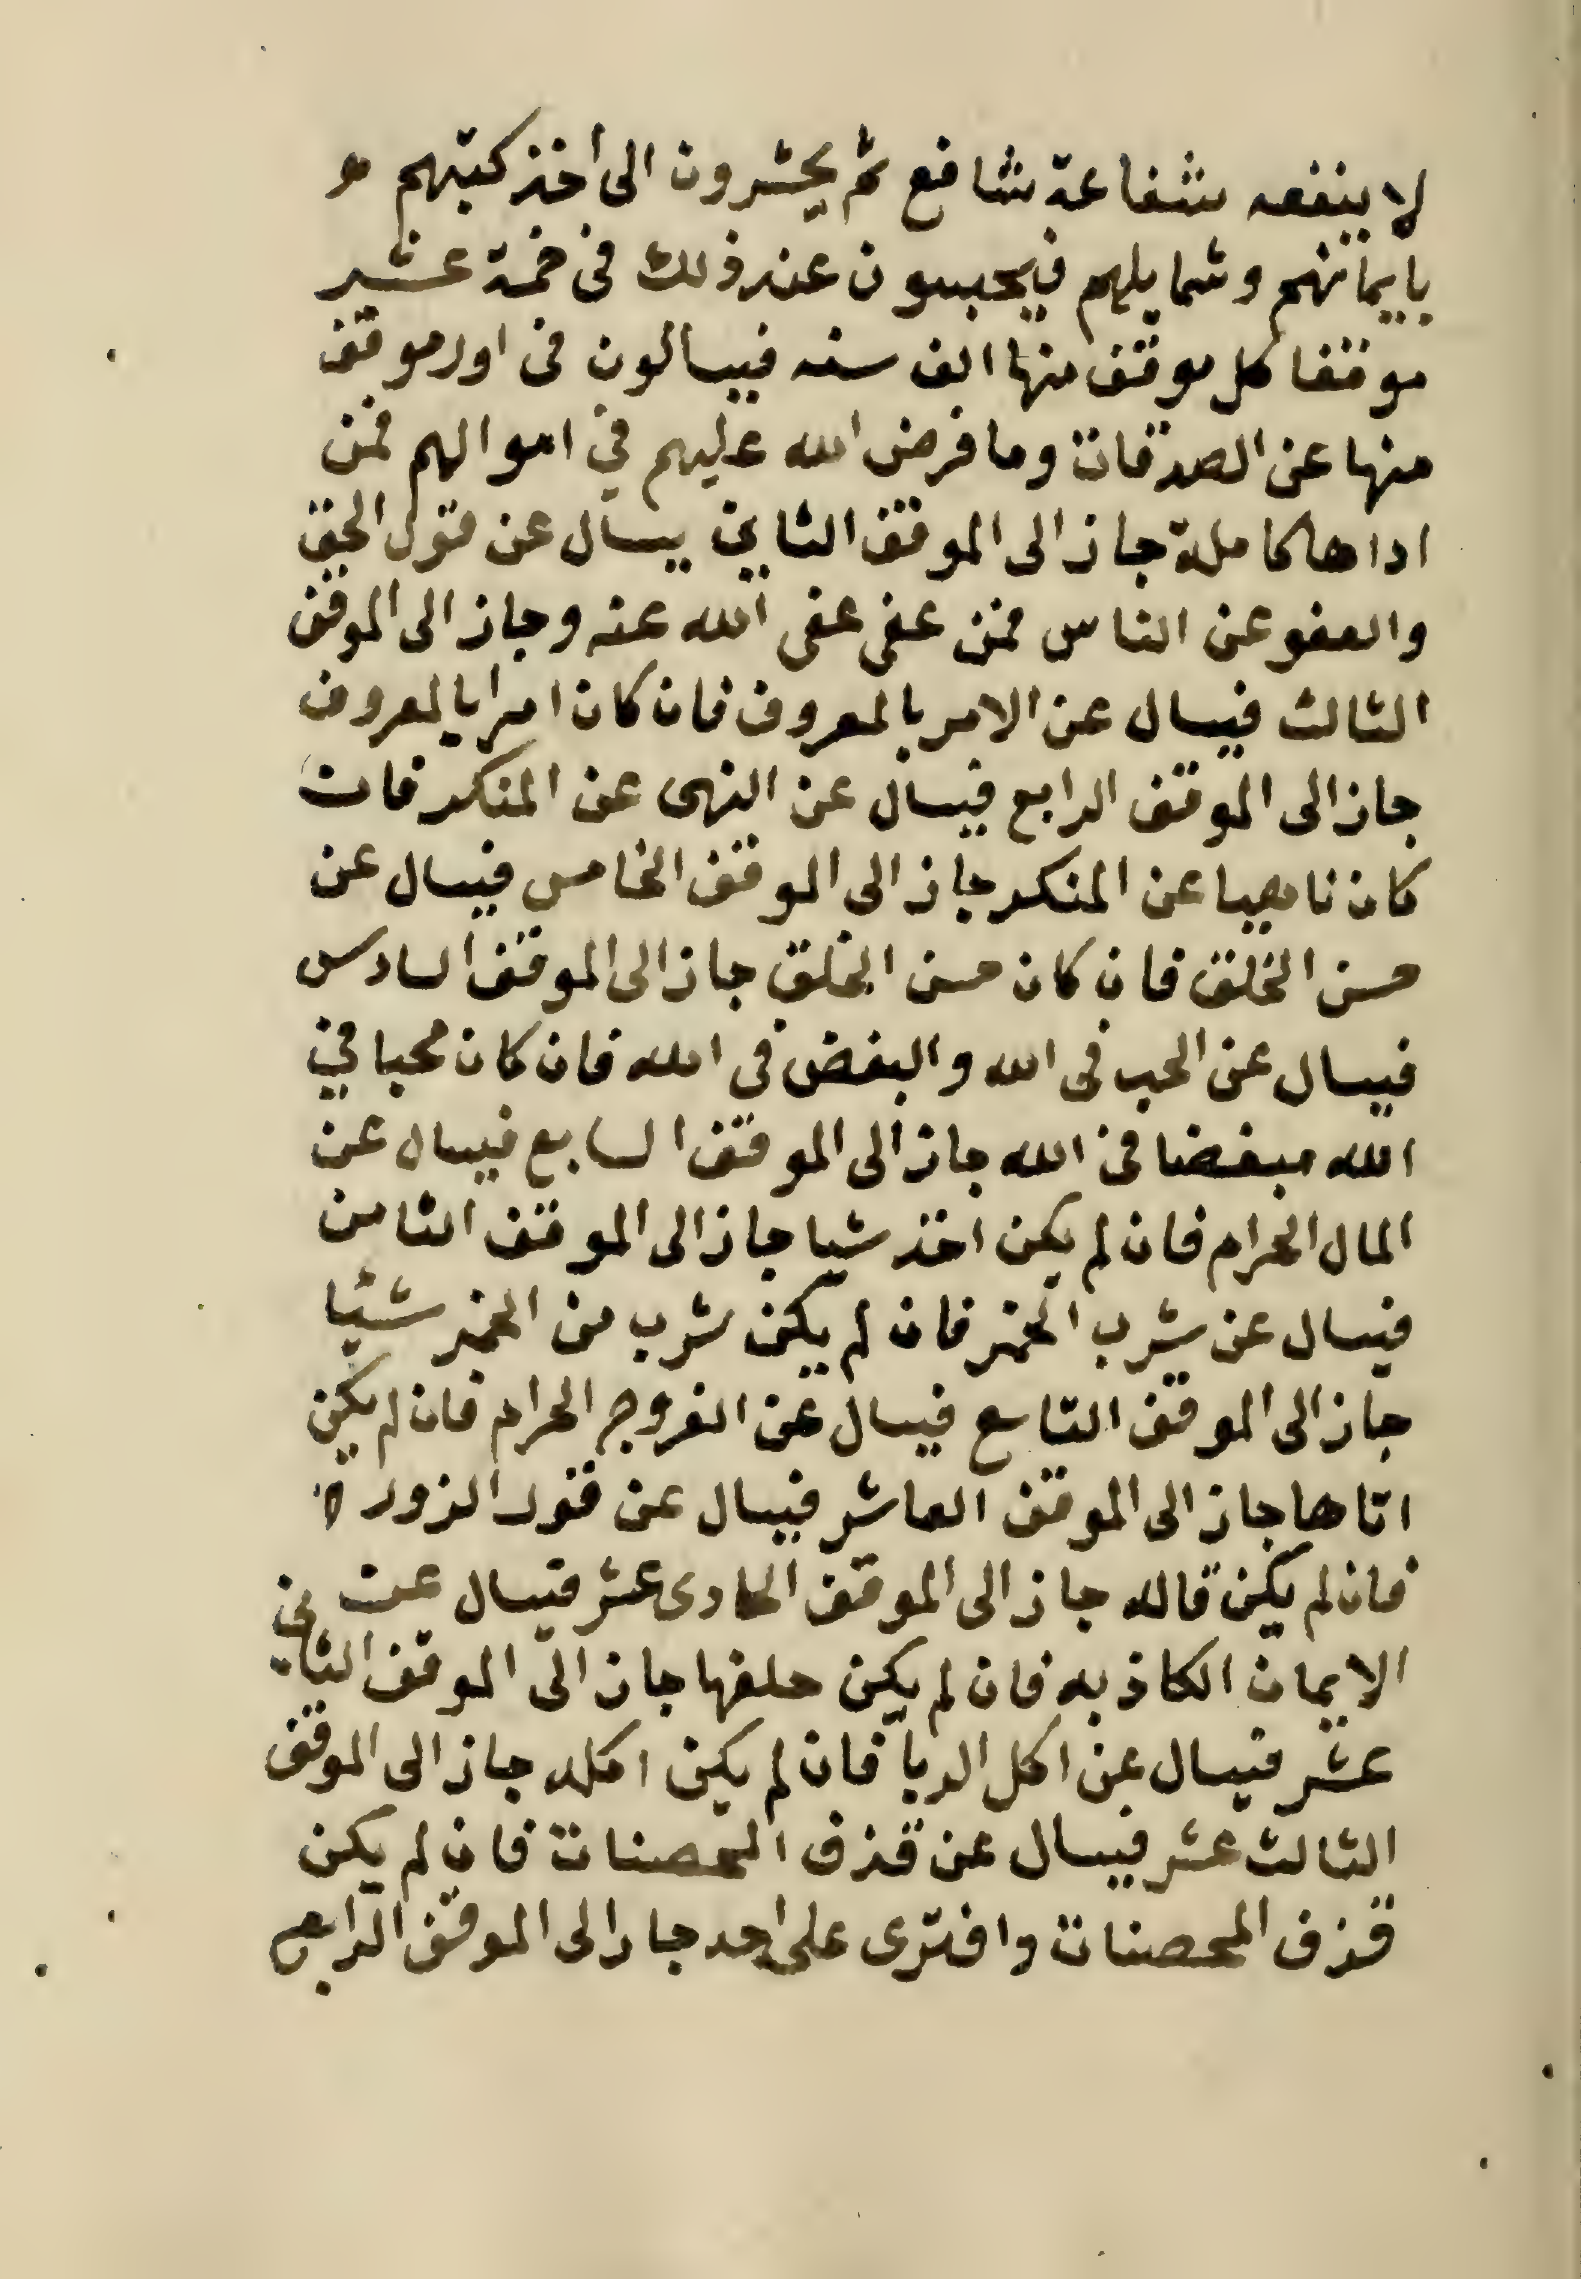 لا ينفعه شفاعة شافع ثم يحشرون الى أخذ كتبهم
بايمانهم وشمايلهم فيحبسون عند ذلك في خمسة عشر
موقفا كل موقف منها الف سنه فيسالون في اول موقف
منها عن الصدقات وما فرض الله عليهم في اموالهم فمن
اداها كاملة جاز الى الموقف الثاني يسال عن قول الحق
والعفو عن الناس فمن عفى عفى الله عنه وجاز الى الموقف
الثالث فيسال عن الامر بالمعروف فان كان امرا بالمعروف
جاز الى الموقف الرابع فيسال عن النهى عن المنكر فان
كان ناهيا عن المنكر جاز الى الموقف الخامس فيسال عن
حسن الخلق فان كان حسن الخلق جاز الى الموقف السادس
فيسال عن الحب في الله والبغض في الله فان كان محبا في
الله مبغضا في الله جاز الى الموقف السابع فيسال عن
المال الحرام فان لم يكن اخذ شيا جاز الى الموقف الثامن
فيسال عن شرب الخمر فان لم يكن شرب من الخمر شئيا
جاز الى الموقف التاسع فيسال عن الفروج الحرام فان لم يكن
اتاها جاز الى الموقف العاشر فيسال عن قول الزور
فان لم يكن قاله جاز الى الموقف الحادى عشر فيسال عن
الايمان الكاذبه فان لم يكن حلفها جاز الى الموقف الثاني
عشر فيسال عن اكل الربا فان لم يكن اكله جاز الى الموقف
الثالث عشر فيسال عن قذف المحصنات فان لم يكن
قذف المحصنات وافترى على احد جاز الى الموقف الرابع